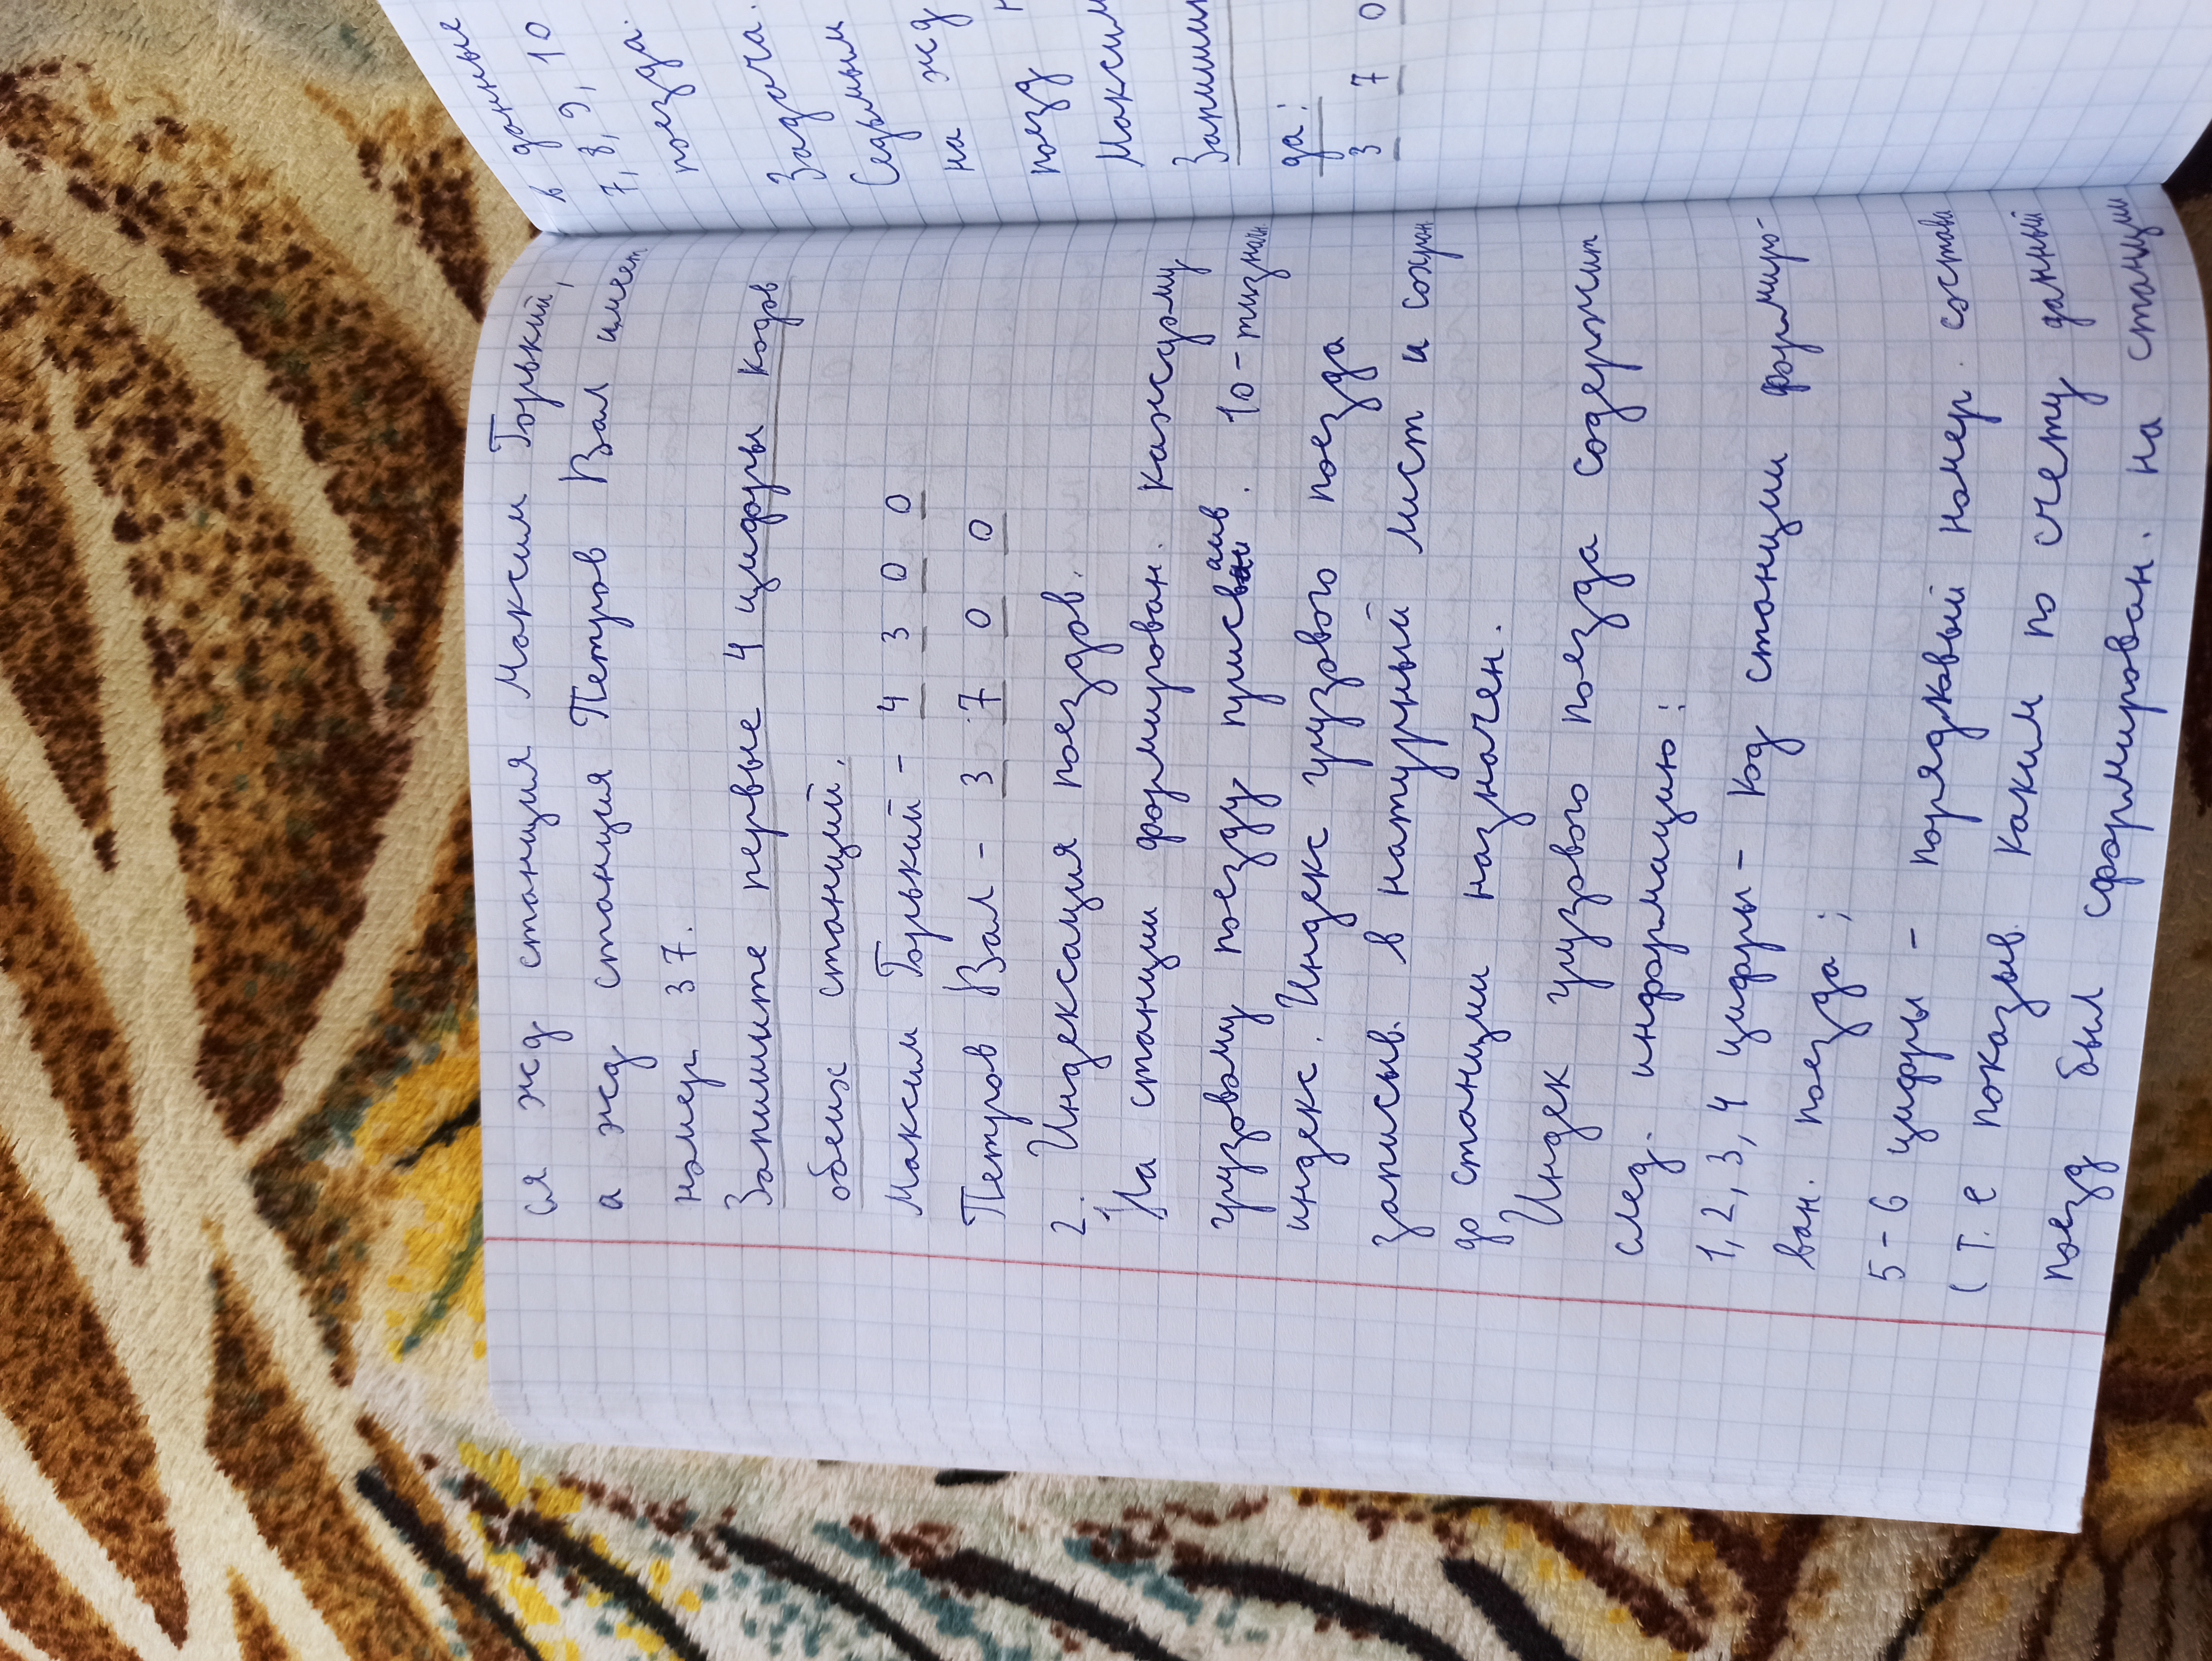 ся жд станция Максим Горький,
а жд станция Петров Вал имеет
номер 37.
Запишите первые 4 цифры кодов
обеих станций.
Максим Горький - 4 3 0 0
Петров Вал - 3 7 0 0
2. Индексация поездов.
На станции формирован. каждому
грузовому поезду присваив. 10-тизначн
индекс. Индекс грузового поезда
записыв. в натурный лист и сохран
до станции назначен.
Индек грузового поезда содержит
след. информацию:
1, 2, 3, 4 цифры - код станции формиро-
ван. поезда;
5-6 цифры - порядковый номер. состава
(т. е показыв. каким по счету данный
поезд был сформирован. на станции
в данные
7, 8, 9, 10
поезда.
Задача.
Седьмым
на жд
поезд
Максим
Запиши
да:
3 7 0